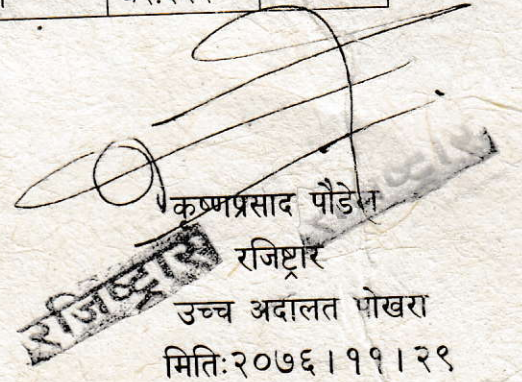 कृष्णप्रसाद पौडेल
रजिष्ट्रार
रजिष्ट्रार
उच्च अदालत पोखरा
मितिः२०७६।११।२९